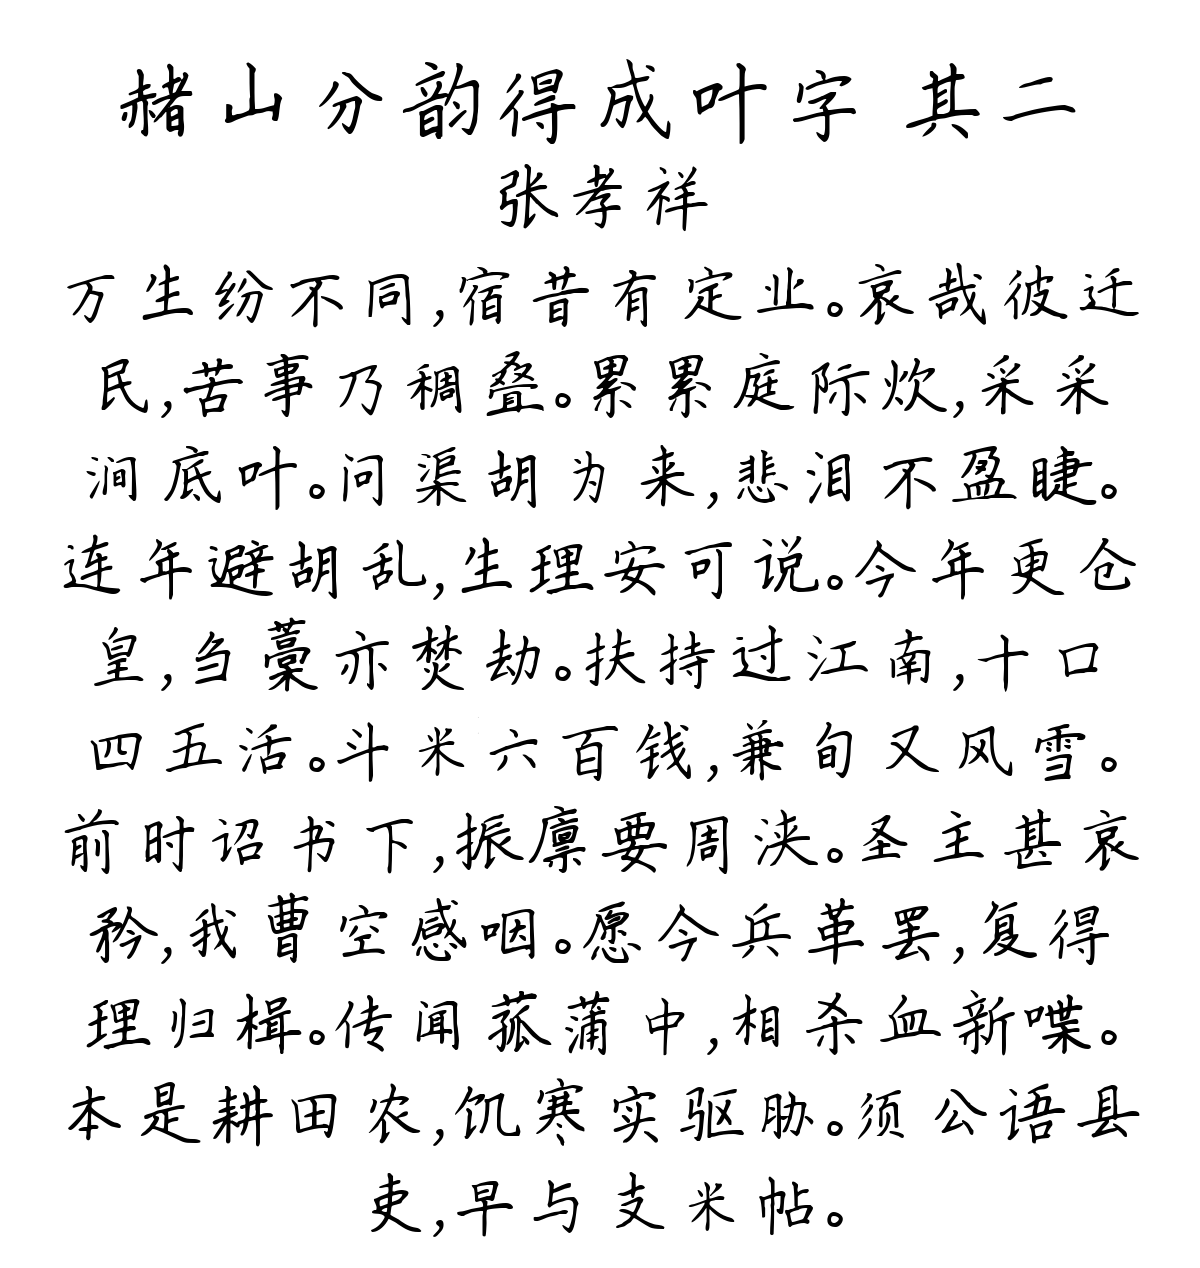 赭山分韵得成叶字 其二
张孝祥
万生纷不同,宿昔有定业。哀哉彼迁
民,苦事乃稠叠。累累庭际炊,采采
涧底叶。问渠胡为来,悲泪不盈睫。
连年避胡乱,生理安可说。今年更仓
皇,刍藁亦焚劫。扶持过江南,十口
四五活。斗米六百钱,兼旬又风雪。
前时诏书下,振廪要周浃。圣主甚哀
矜,我曹空感咽。愿今兵革罢,复得
理归楫。传闻菰蒲中,相杀血新喋。
本是耕田农,饥寒实驱胁。须公语县
吏,早与支米帖。